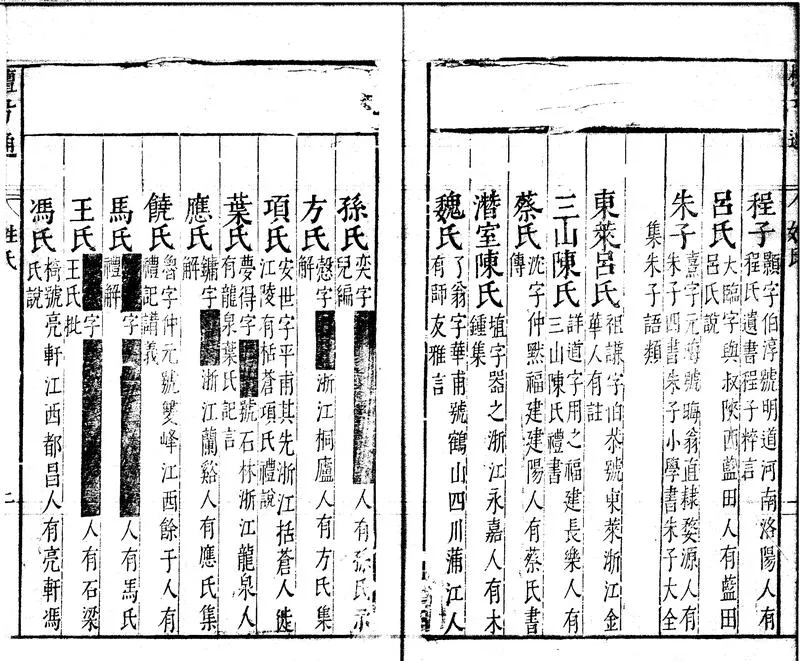 程子
顥字伯淳號明道河南洛陽人有
程氏遺書程子粹言
呂氏
大臨字與叔陝西藍田人有藍田
呂氏說
朱子
熹字元晦號晦翁直隸婺源人有
朱子四書朱子小學書朱子大全
集朱子語類
東萊呂氏
祖謙字伯恭號東萊浙江金
華人有註
三山陳氏
詳道字用之福建長樂人有
三山陳氏禮書
蔡氏
沈字仲默福建建陽人有蔡氏書
傳
潛室陳氏
埴字器之浙江永嘉人有木
鍾集
魏氏
了翁字華甫號鶴山四川蒲江人
有師友雅言
孫氏
奕字
人有孫氏示
兒編
方氏
愨字
浙江桐廬人有方氏集
解
項氏
安世字平甫其先浙江括蒼人徙
江陵有栝蒼項氏禮說
葉氏
夢得字
號石林浙江龍泉人
有龍泉葉氏記言
應氏
鏞字
浙江蘭谿人有應氏集
解
饒氏
魯字仲元號雙峰江西餘于人有
禮記講義
馬氏
字
人有馬氏
禮解
王氏
字
人有石梁
王氏批
馮氏
椅號亮軒江西都昌人有亮軒馮
氏說
姓氏